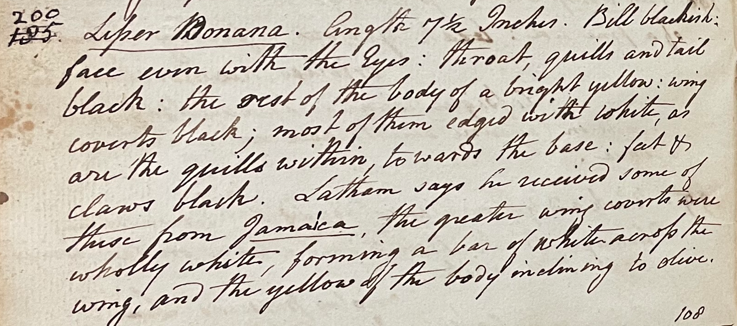 200
195. Lesser Bonana. length 7½ Inches. Bill blackish:
face even with the Eyes: throat, quills and tail
black: the rest of the body of a bright yellow: wing
coverts black; most of them edged with white, as
are the quills within, towards the base: feet &
claws black. Latham says he received some of
these from Jamaica, the greater wing coverts were
wholly white, forming a bar of white across the
wing, and the yellow of the body inclining to olive.
108